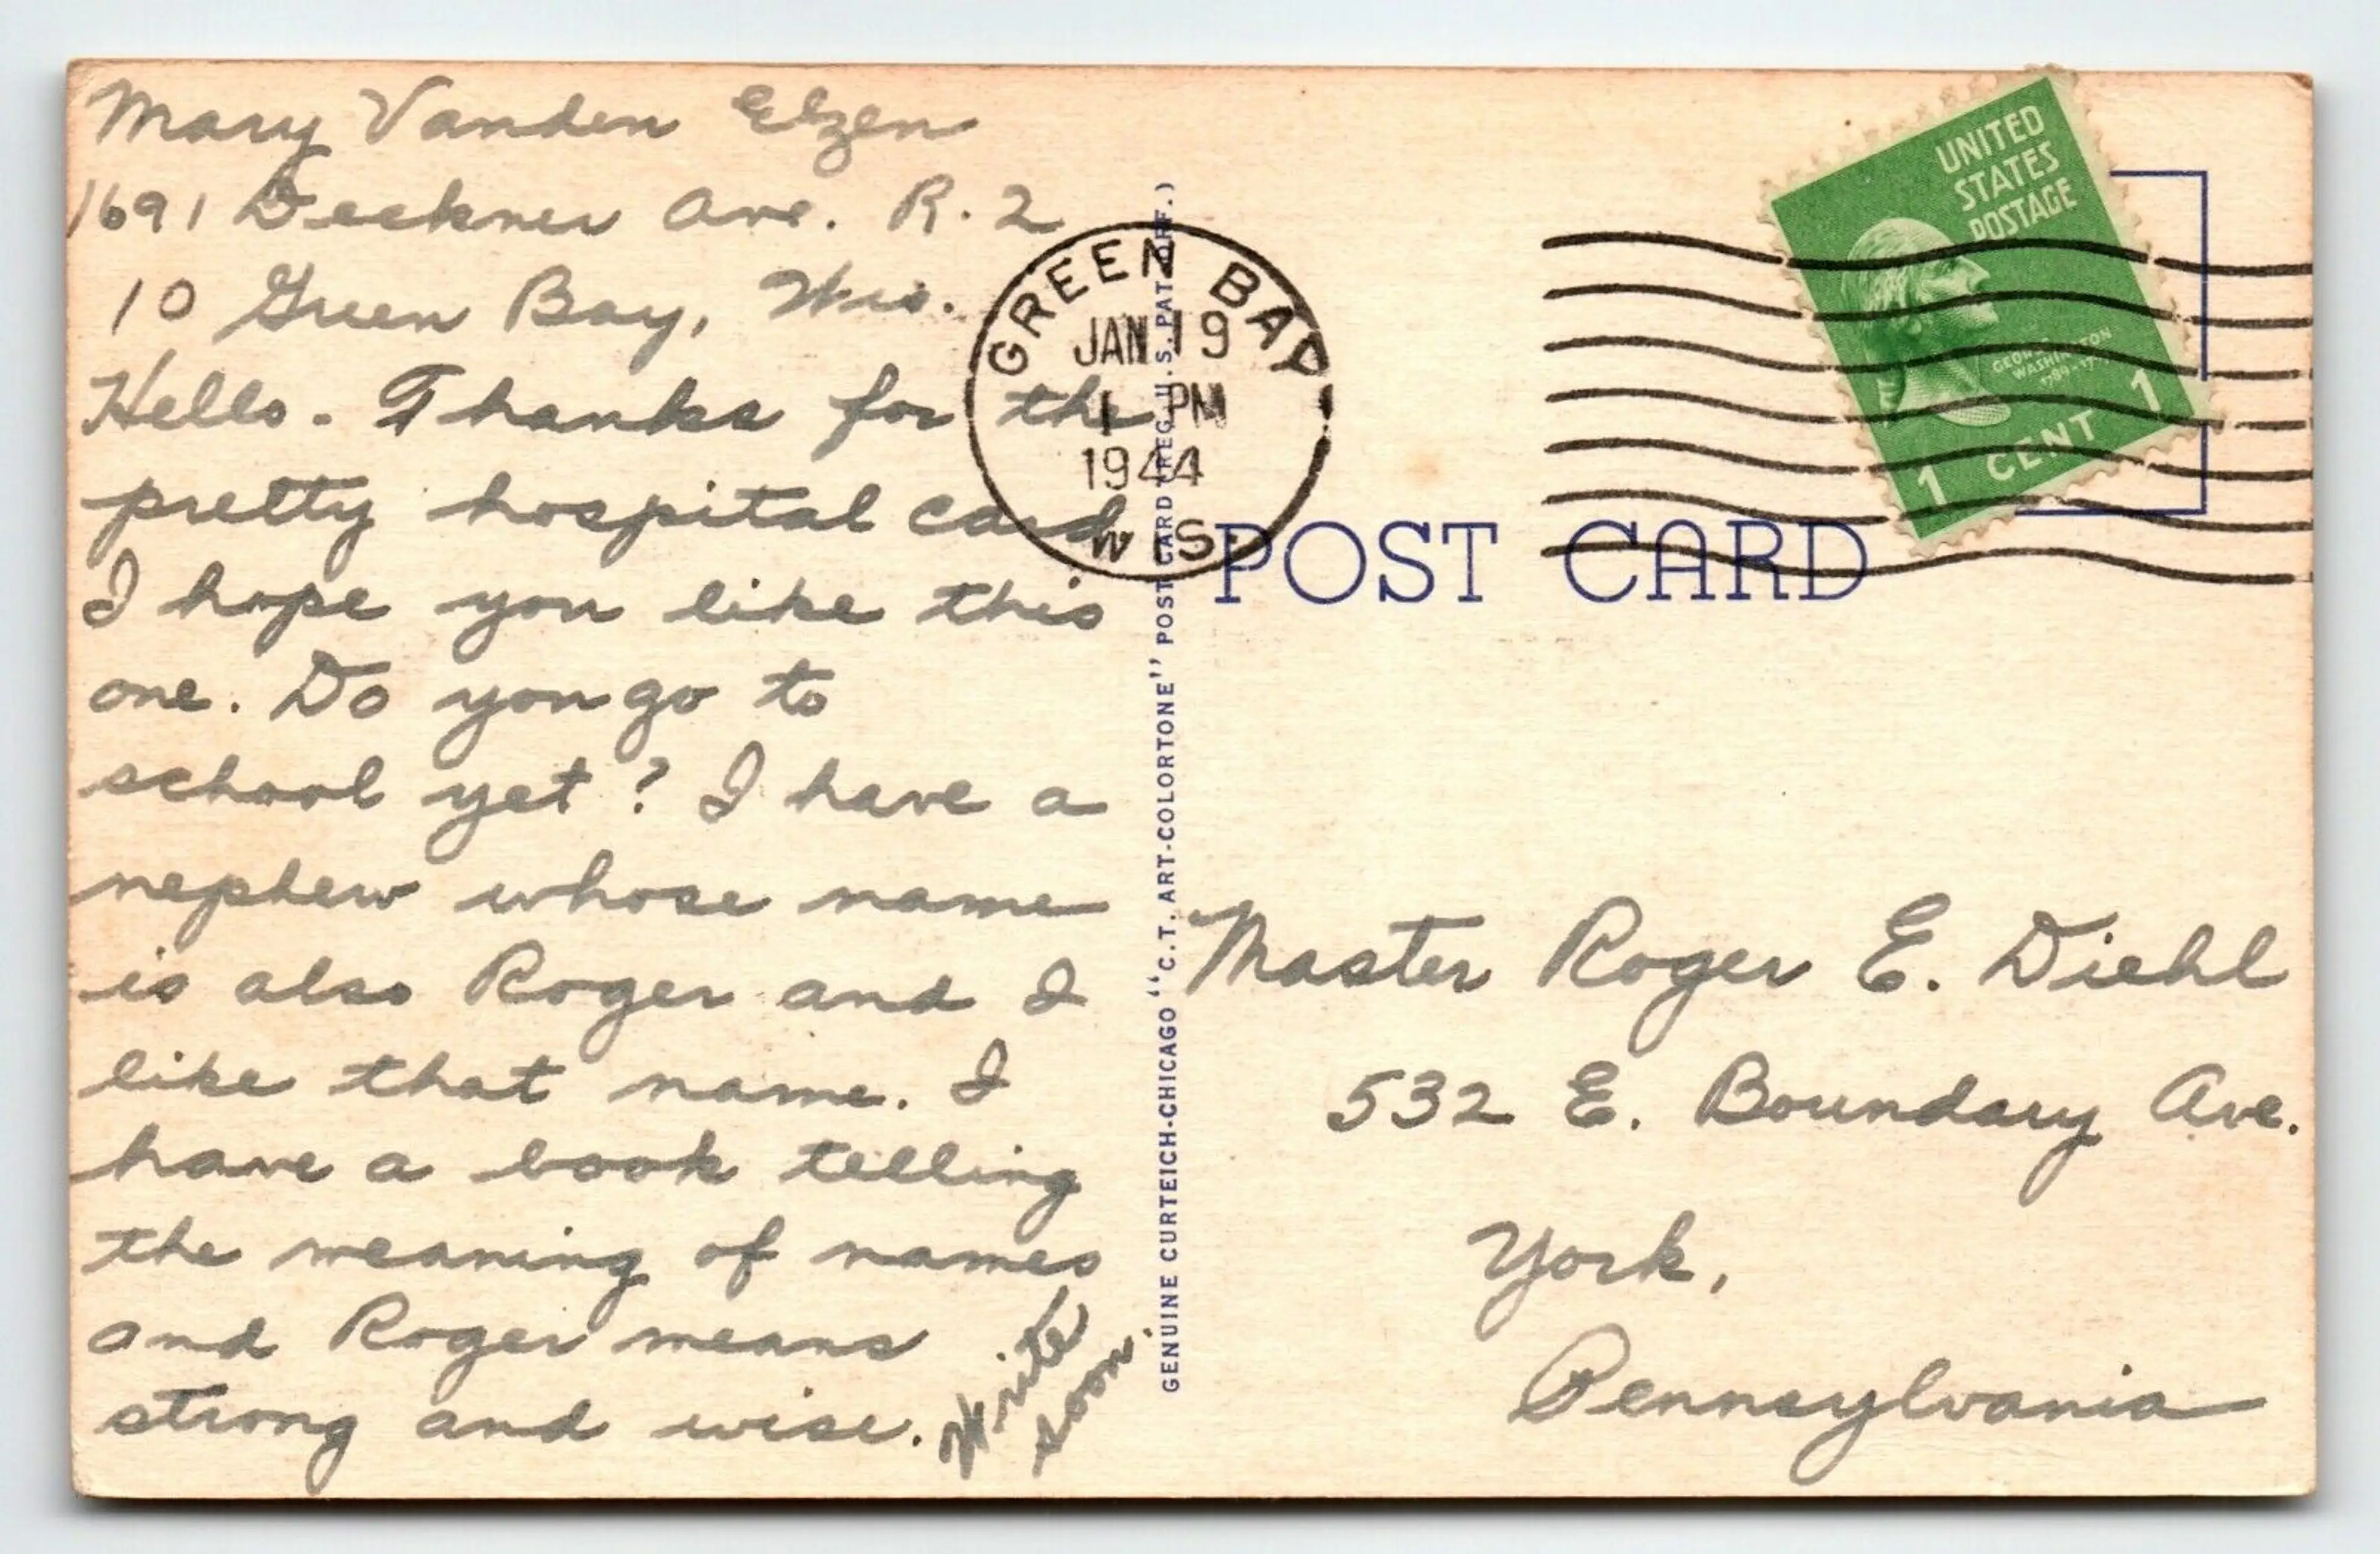 Mary Vanden Elzen
1691 Deckner Ave. R. 2
10 Green Bay, Wis.
Hello. Thanks for the
pretty hospital card
I hope you like this
one. Do you go to
school yet? I have a
nephew whose name
is also Roger and I
like that name. I
have a book telling
the meaning of names
and Roger means
strong and wise.
Write
soon.
GREEN BAY
JAN 19
1 PM
1944
WIS.
GENUINE CURTEICH-CHICAGO "C.T. ART-COLORTONE" POST CARD (REG. U.S. PAT. OFF.)
UNITED
STATES
POSTAGE
GEORGE
WASHINGTON
1 CENT 1
POST CARD
Master Roger E. Diehl
532 E. Boundary Ave.
York,
Pennsylvania